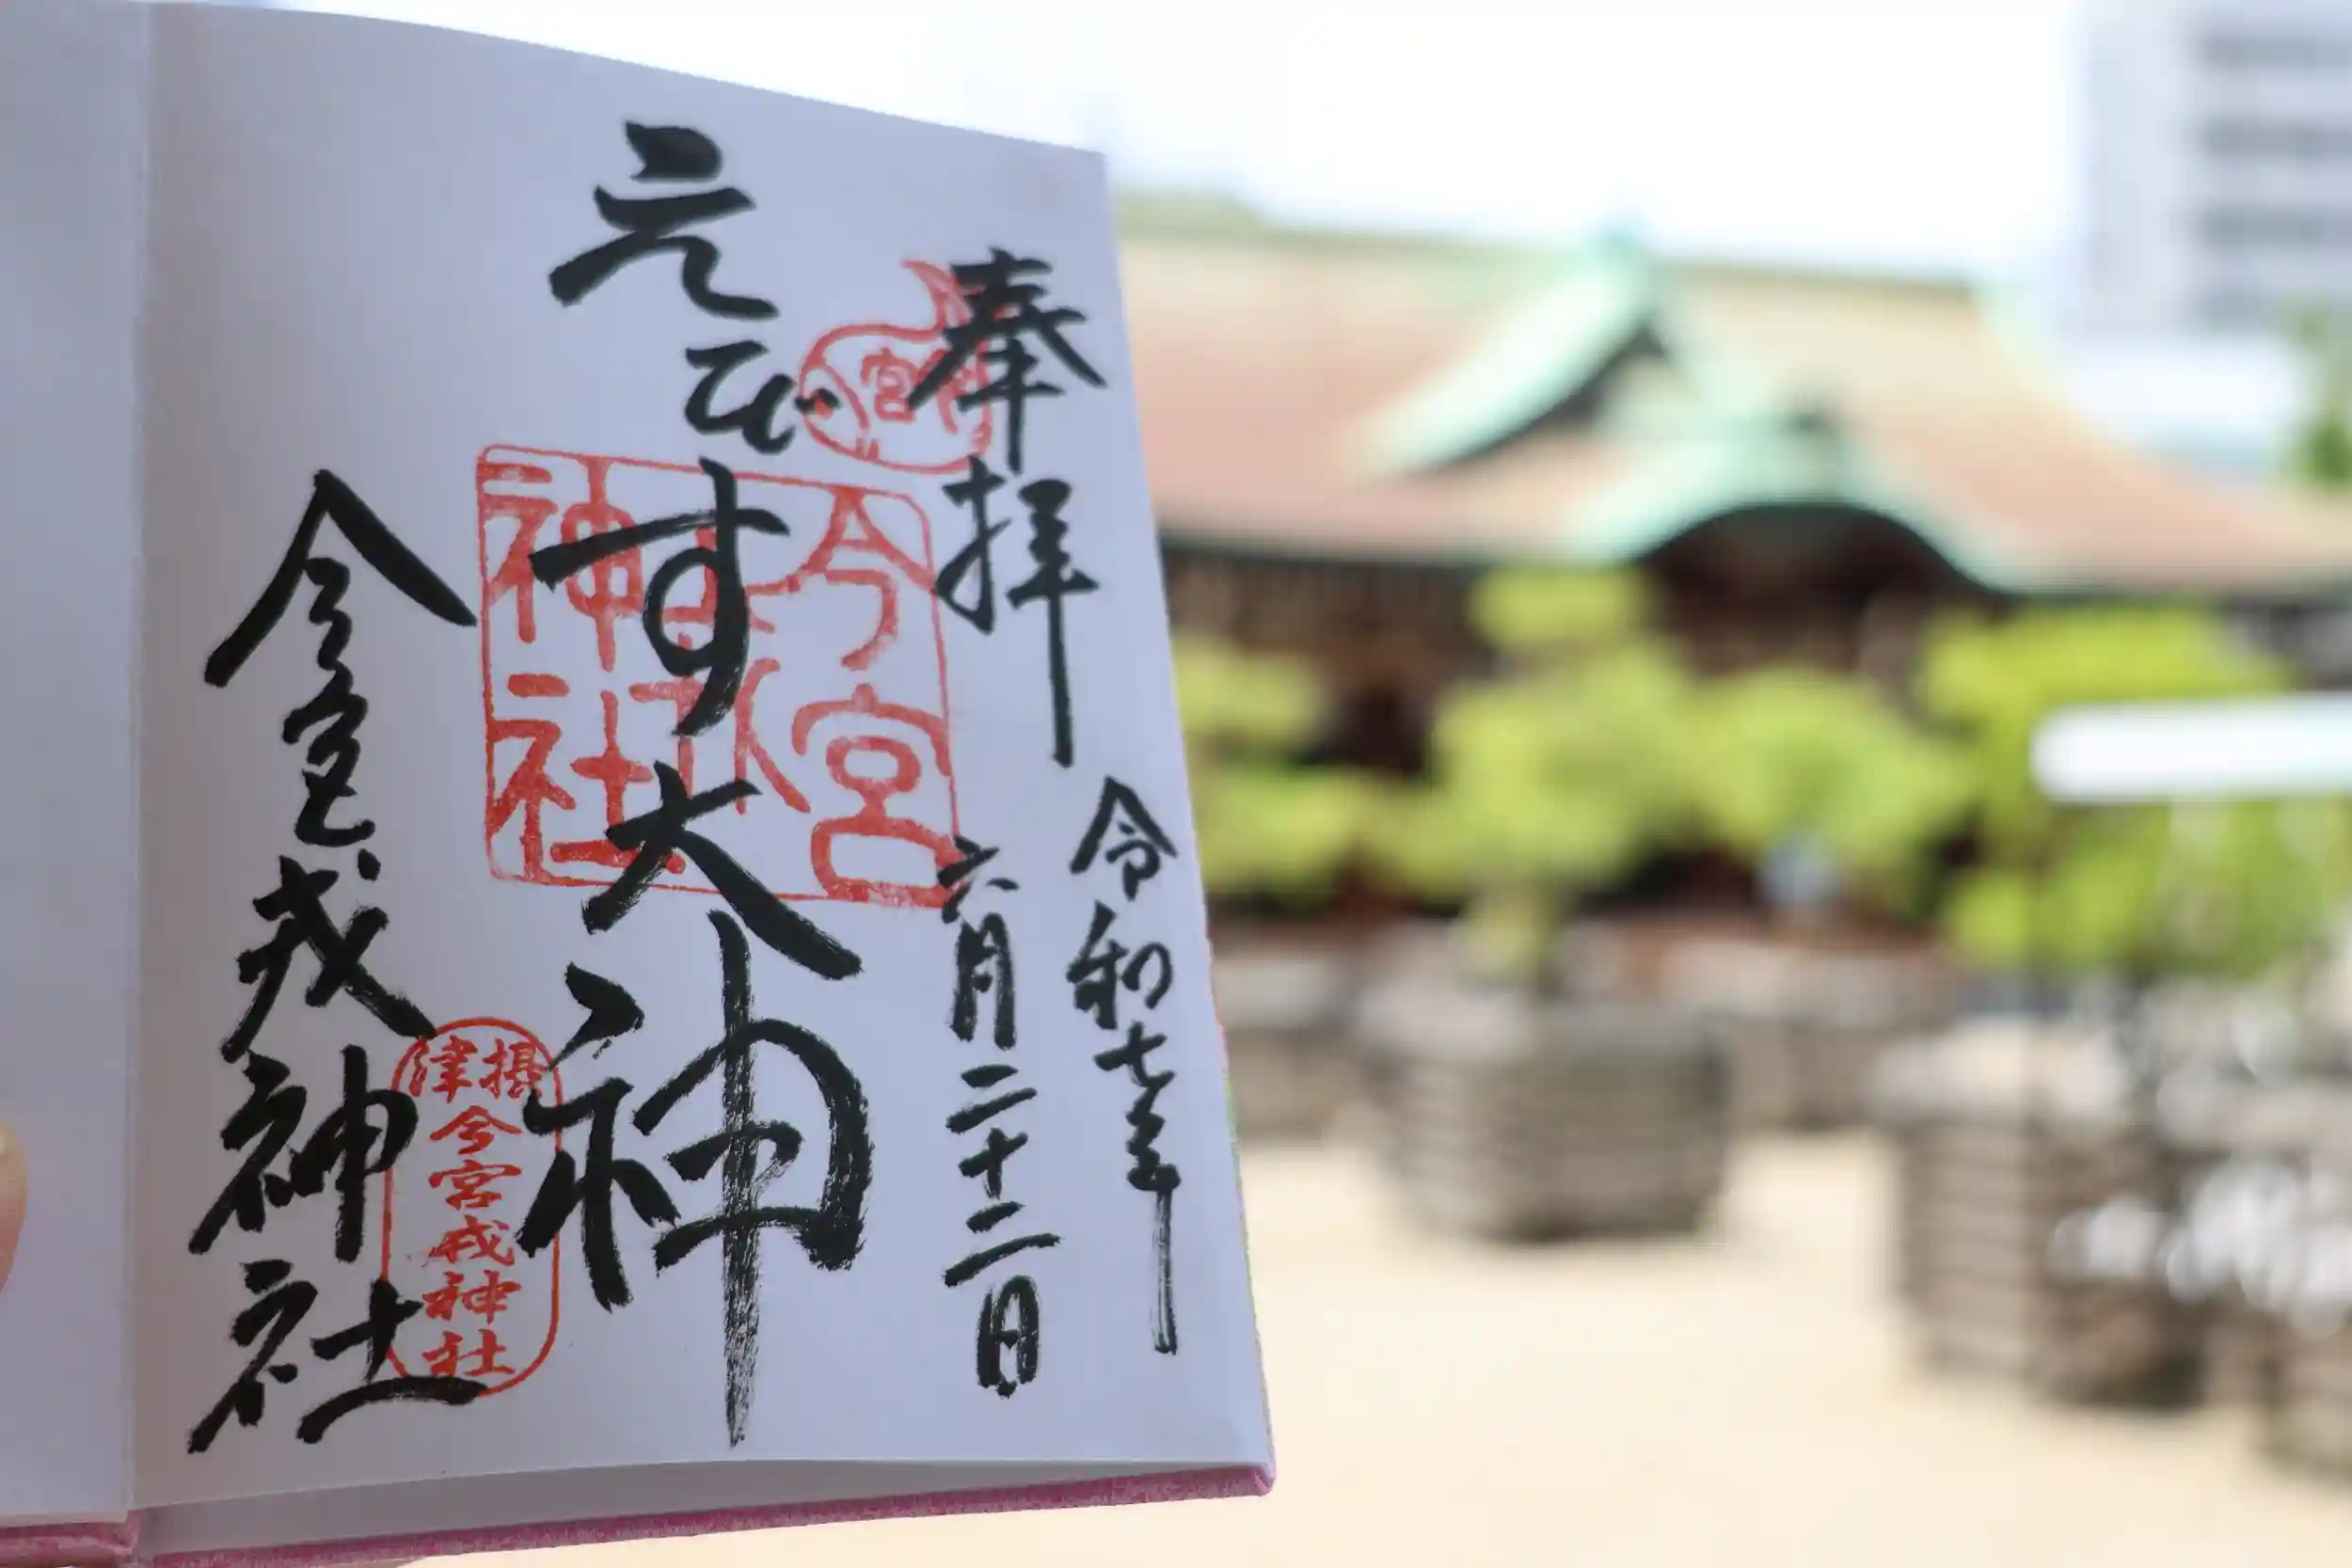 奉拝
令和七年
六月二十二日
えびす大神
今宮戎神社
宮
今宮
神社
摂津
今宮戎神社